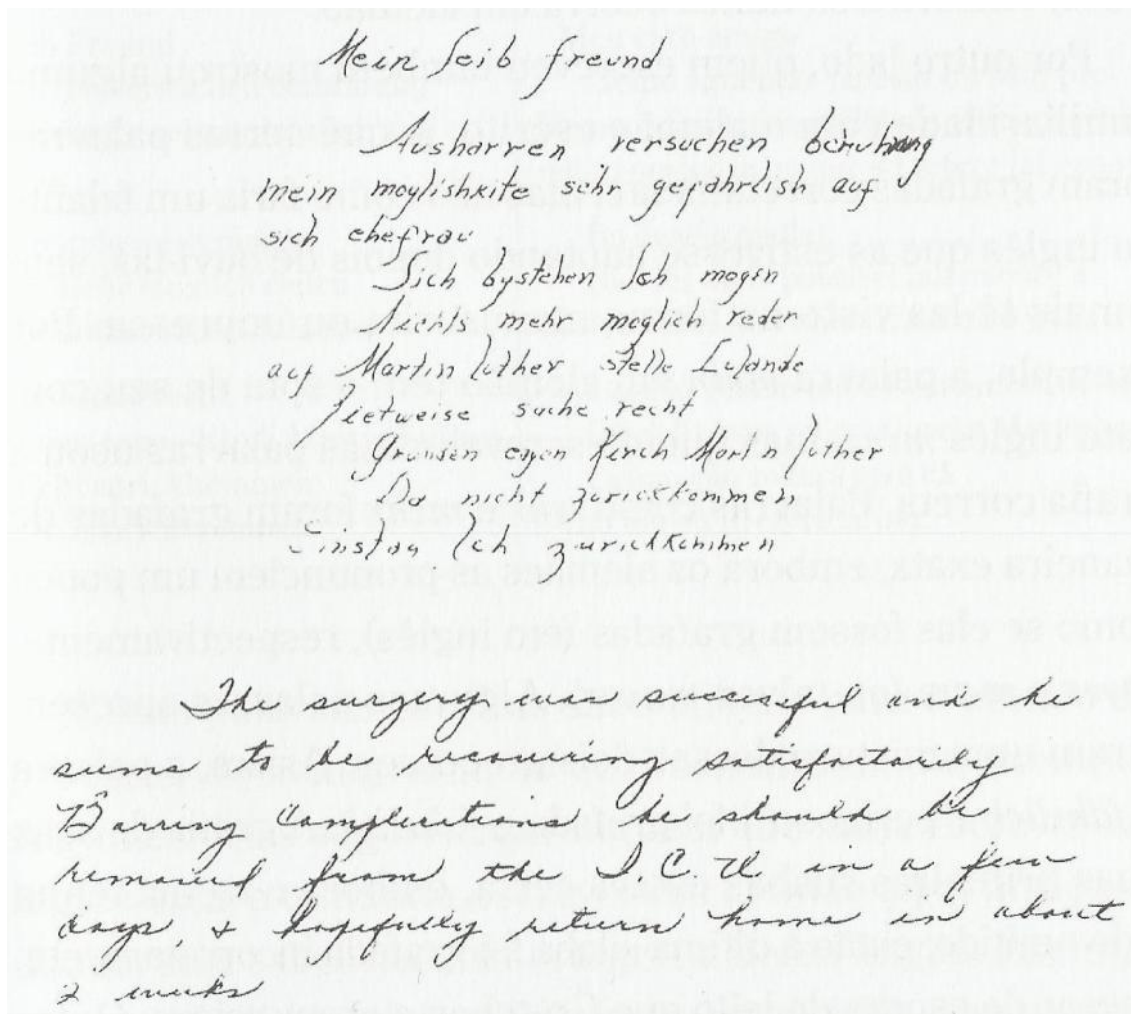 Mein leib freund
Ausharren versuchen beruhrung
mein moglishkite sehr gefährlish auf
sich ehefrau
Sich bystehen Ich mogen
Nichts mehr moglich reden
auf Martin luther stelle
suche recht
Grunden eyen Kirch Martin luther
Da nicht zurickkommen
Einstag Ich zurickkommen
The surgery was successful and he
seems to be recovering satisfactorily
Barring complications he should be
removed from the I.C.U in a few
days, & hopefully return home in about
2 weeks